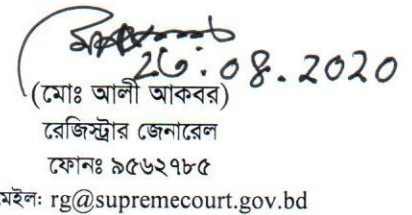 26.08.2020
(মোঃ আলী আকবর)
রেজিস্ট্রার জেনারেল
ফোনঃ ৯৫৬২৭৮৫
মেইল: rg@supremecourt.gov.bd